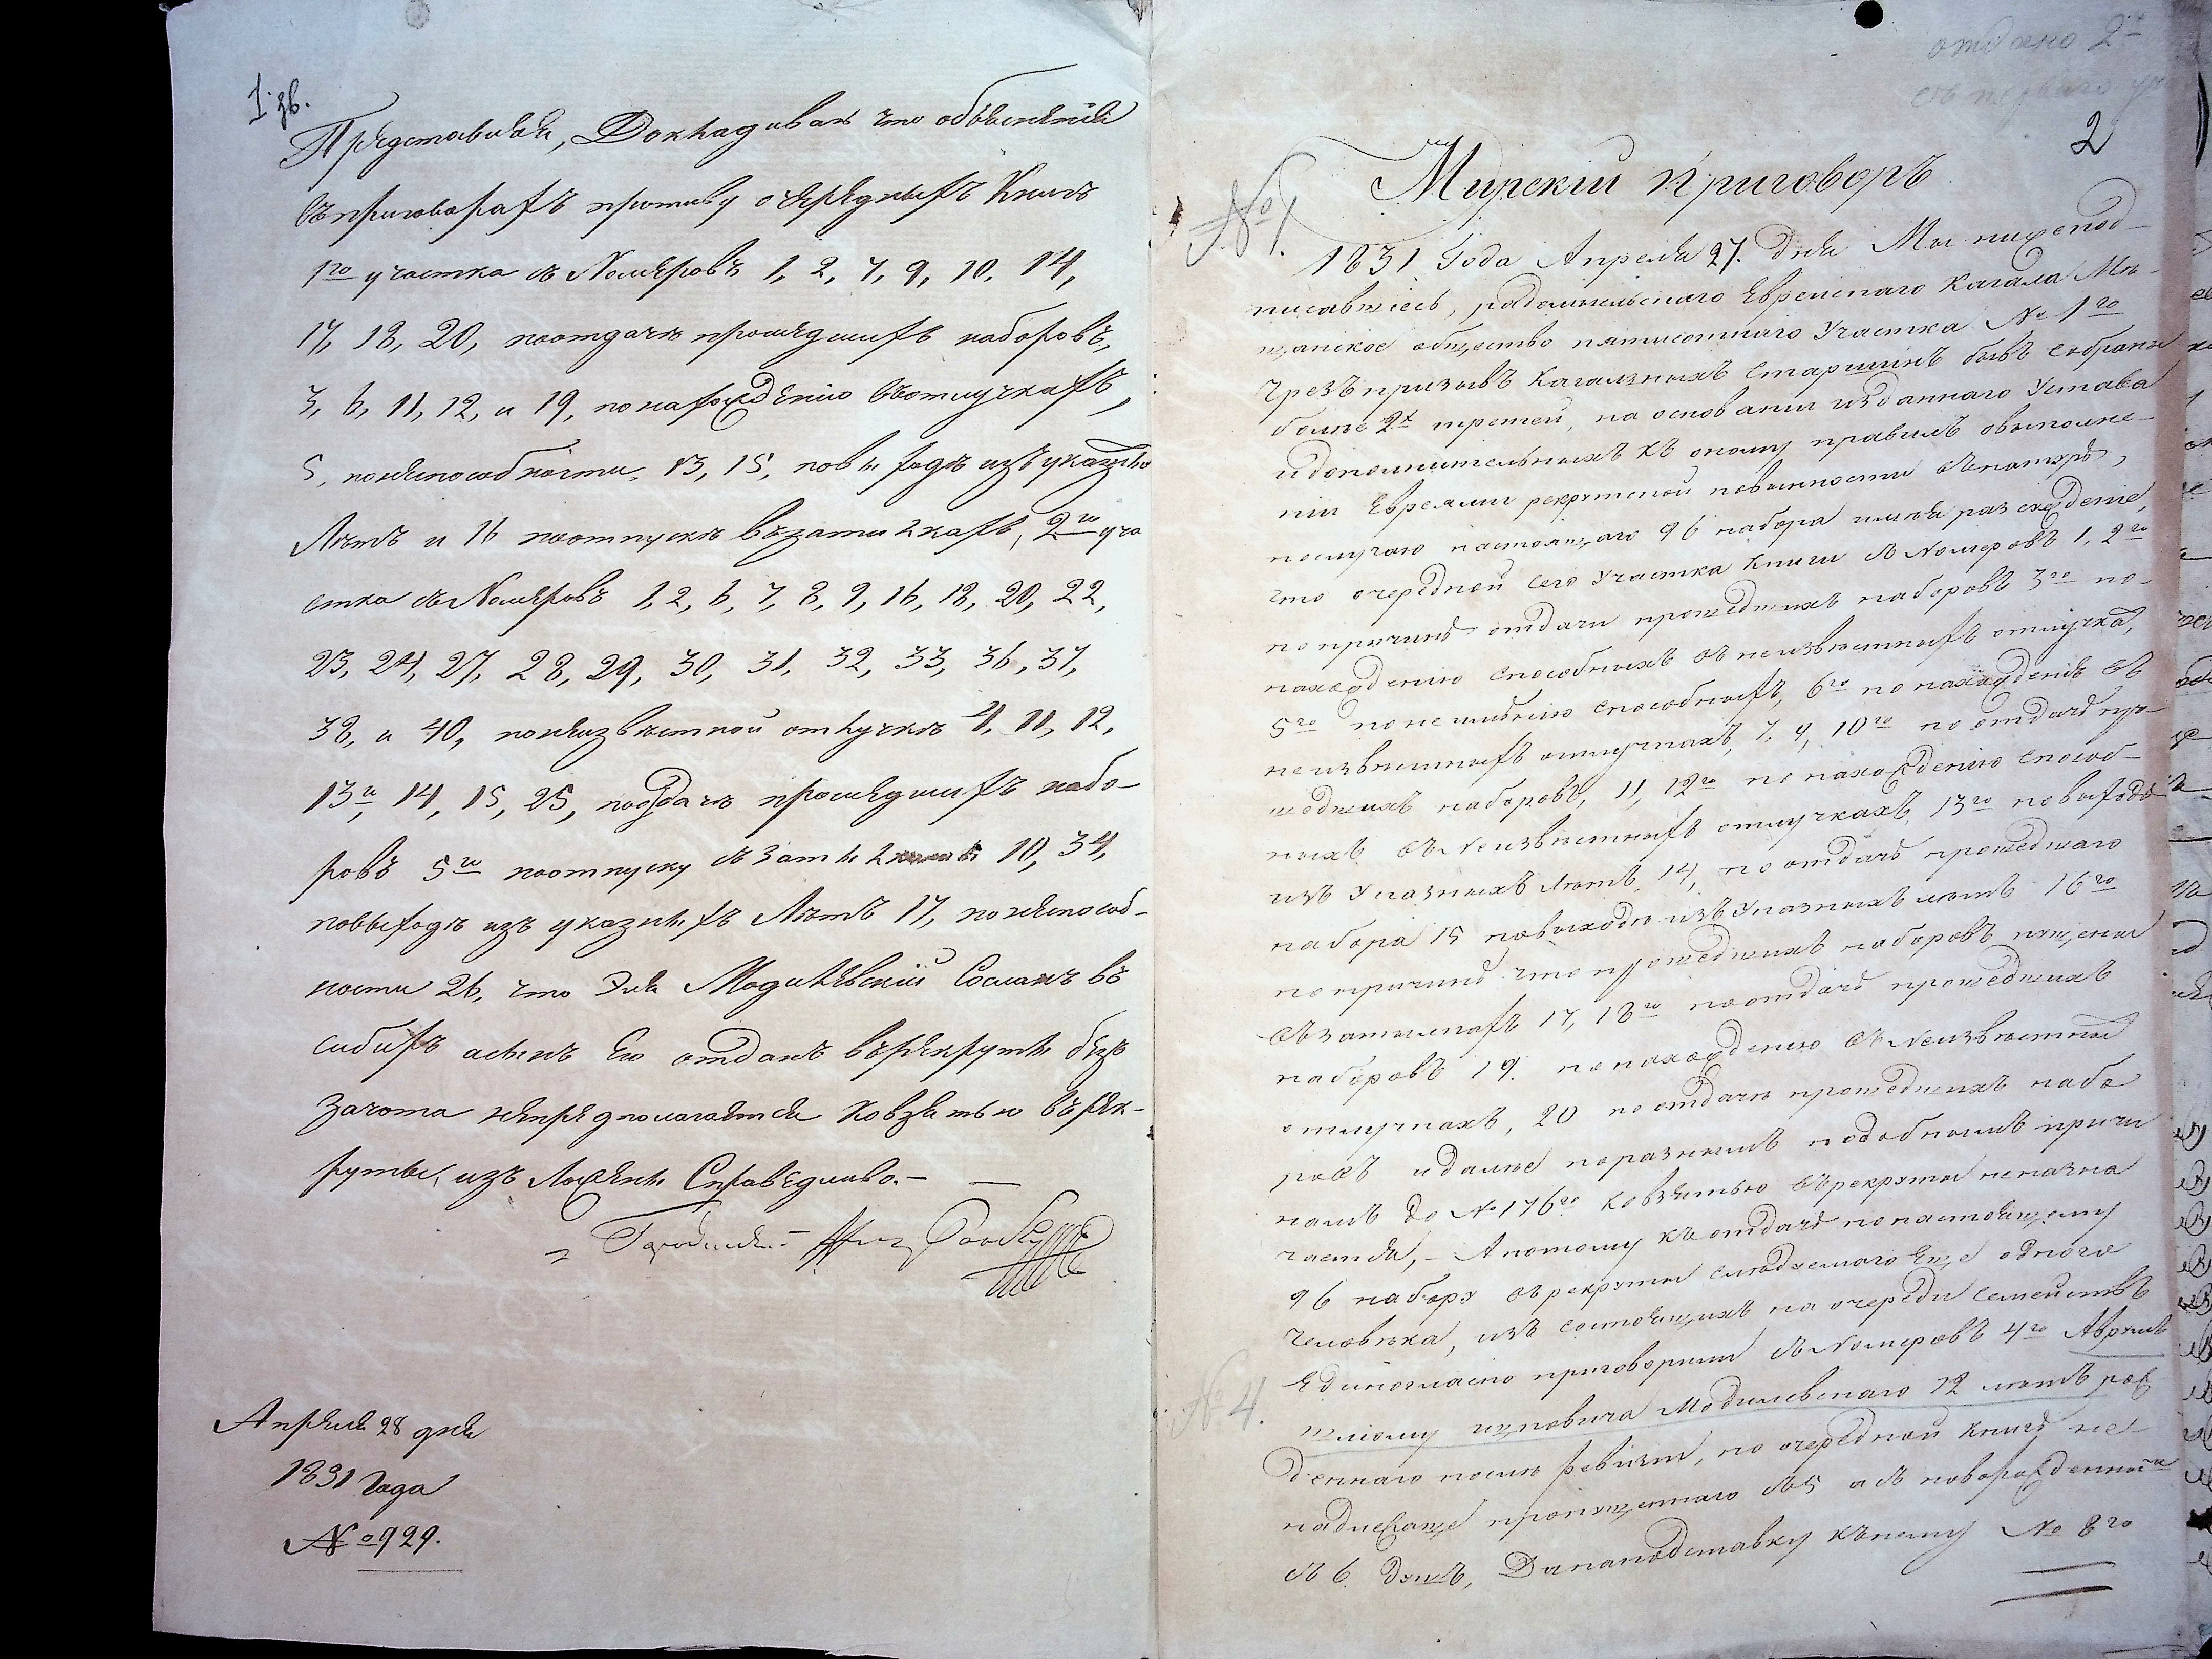 1 зв.
Представили, Докладивая что объясненія
въ приговорахъ противу очередныхъ Книгъ
1го участка съ Номеровъ 1, 2, 7, 9, 10, 14,
17, 18, 20, поотдачѣ прошедшихъ наборовъ,
3, 6, 11, 12, и 19, по нахожденію въ отлучкахъ,
5, по неспособности, 13, 15, повыходѣ изъ указныхъ
Лѣтъ и 16 поотпускѣ въ зати
2го уча
стка съ Номеровъ 1, 2, 6, 7, 8, 9, 16, 18, 20, 22,
23, 24, 27, 28, 29, 30, 31, 32, 33, 36, 37,
38, и 40, понеизвѣстной отлучкѣ 4, 11, 12,
13го, 14, 15, 25, поотдачѣ прошедшихъ набо-
ровъ 5го поотпуску 10, 34,
повыходѣ изъ указныхъ Лѣтъ 17, понеспособ-
ности 26, что Эля Модилевскій Сосланъ въ
сибирь а сынъ Его отданъ въ рекруты безъ
зачота непредполагается ковзятью въ рек-
руты, изъ Справедливо. —
Апреля 28 дня
1831 Года
№ 929.
отдано 2
съ перваго уч
2
№ 1.
Мирскій приговоръ
1831 Года Апреля 27. дня Мы нижепод-
писавшіесь, радомысльскаго Еврейскаго Кагала Мѣ-
щанское общество пятисотнаго Участка № 1го
чрезъ призывъ Кагальныхъ Старшинъ бывъ собраны
более 2х третей, на основаніи изданнаго Устава
и дополнительныхъ къ оному правилъ овыполне-
ніи Евреями рекрутской повинности въ натурѣ,
послучаю настоящаго 96 набора имѣя разсужденіе,
что очередной сего Участка Книги съ Номеровъ 1, 2го
по причинѣ отдачи прошедшихъ наборовъ 3го по-
нахожденію способныхъ въ неизвѣстныхъ отлучка,
5го понеимѣнію способныхъ, 6го по нахожденію въ
неизвѣстныхъ отлучкахъ, 7, 9, 10го по отдачѣ про-
шедшихъ наборовъ, 11, 12го по нахожденію способ-
ныхъ въ Неизвѣстныхъ отлучкахъ, 13го по выходѣ
изъ Указныхъ лѣтъ, 14, по отдачѣ прошедшаго
набора 15 повыходѣ изъ Указныхъ лѣтъ 16го
по причинѣ что прошедшихъ наборовъ пущены
17, 18го поотдачѣ прошедшихъ
наборовъ 19. по нахожденію въ Неизвѣстныхъ
отлучкахъ, 20 поотдачѣ прошедшихъ набо
ровъ и далее поразнымъ подобнымъ причи
намъ до № 176го ковзятью въ рекруты неназна
чается, — А потому къ отдачѣ понастоящему
96 набору въ рекруты следуемаго Еще одного
человѣка, изъ состоящихъ на очереди семействъ
№ 4.
Единогласно приговорили съ Номеровъ 4го Аврумъ
Модилевскаго 12 лѣтъ рож
деннаго послѣ ревизіи, по очередной книгѣ не-
пропущеннаго съ 5 а съ новорожденными
съ 6. душъ, Данаподставку къ нему № 8го